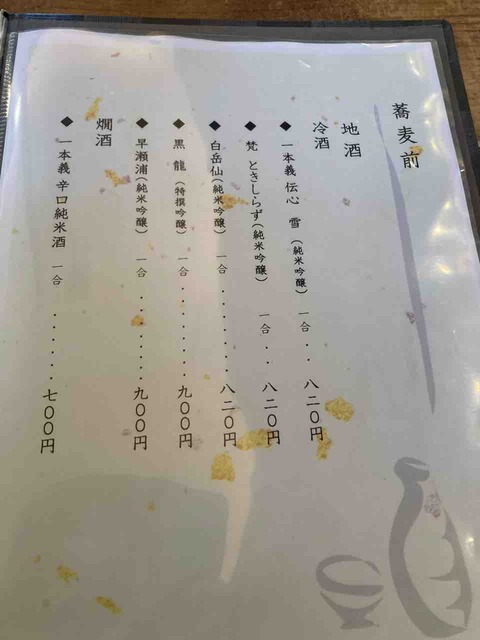 蕎麦前
地酒
冷酒
◆ 一本義 伝心 雪 (純米吟醸) 一合 ・・ 八二〇円
◆ 梵 ときしらず(純米吟醸) 一合 ・・ 八二〇円
◆ 白岳仙(純米吟醸) 一合 ・・・・・・・ 八二〇円
◆ 黒龍(特撰吟醸) 一合 ・・・・・・・ 九〇〇円
◆ 早瀬浦(純米吟醸) 一合 ・・・・・・・ 九〇〇円
燗酒
◆ 一本義 辛口純米酒 一合 ・・・・・・・ 七〇〇円